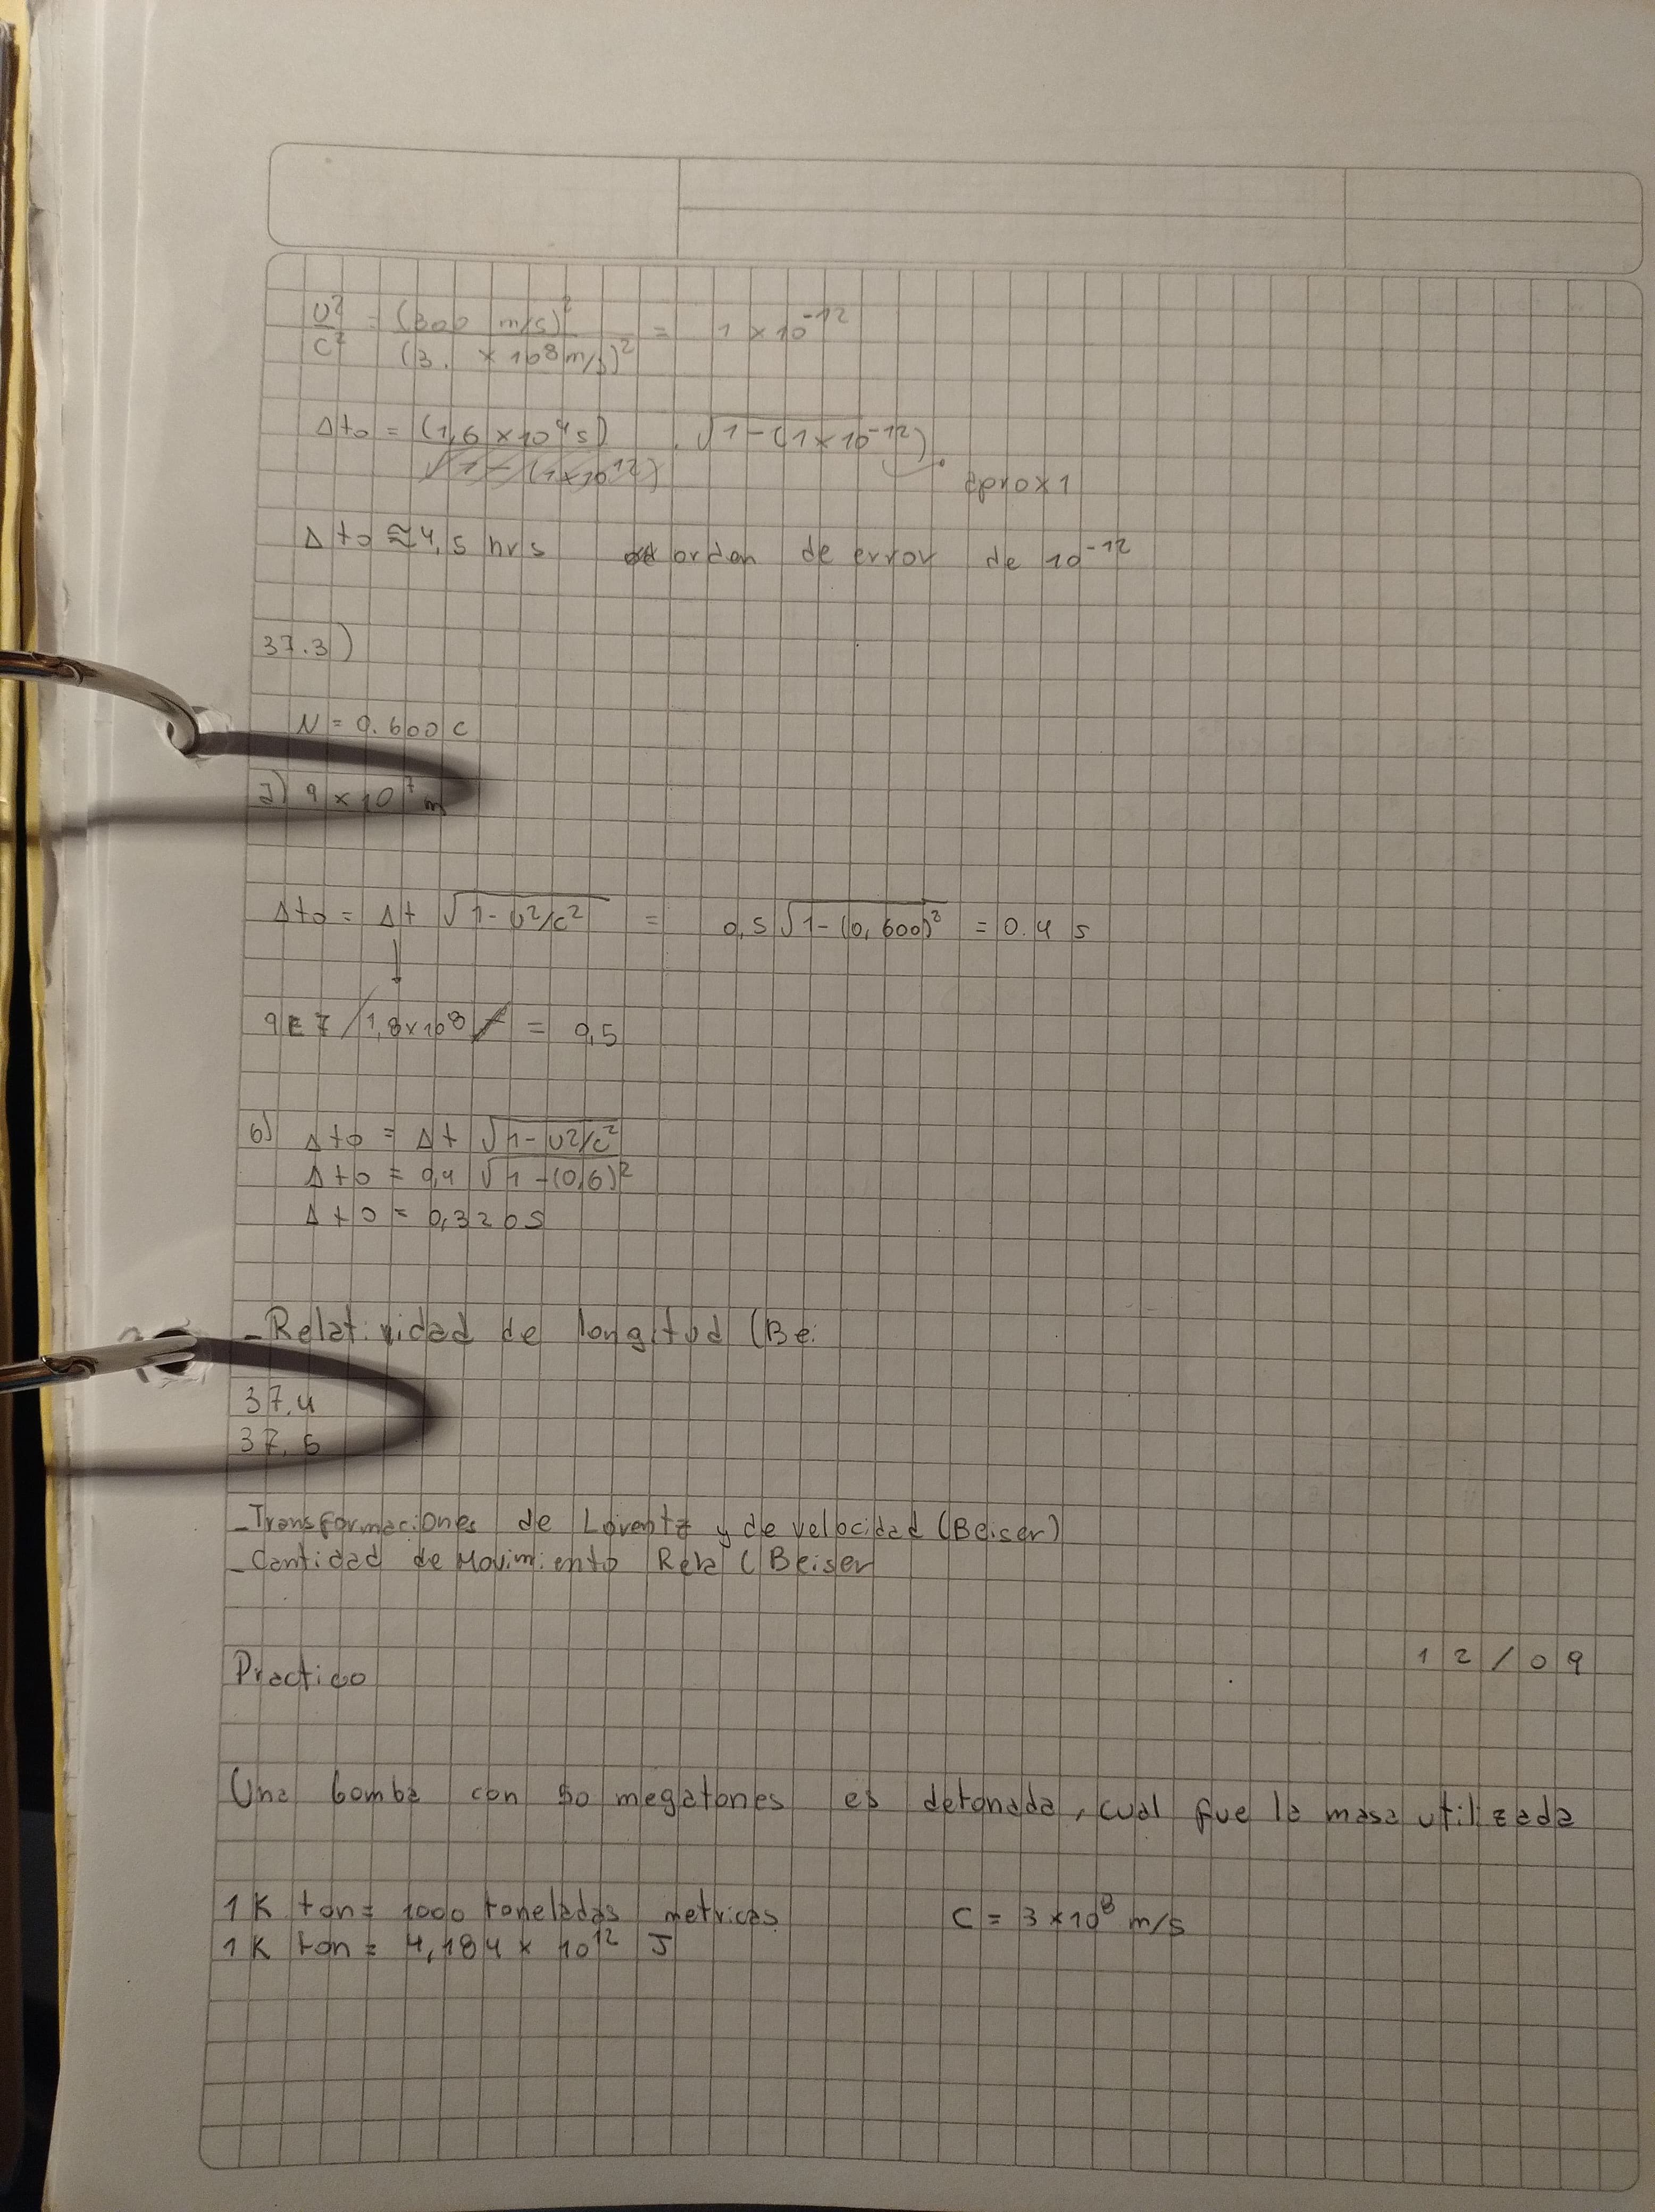 U²/C² = (300 m/s)² / (3. × 10⁸ m/s)² = 1 × 10⁻¹²
Δt₀ = (1,6 × 10⁴ s) . √1-(1×10⁻¹²)
√1-(1×10¹²)
aprox 1
Δt₀ ≅ 4,5 hrs orden de error de 10⁻¹²
37.3)
N = 0.600 c
a) 9 × 10⁷ m
Δt₀ = Δt √1-U²/c² = 0,5 √1-(0,600)² = 0.4 s
↓
9E7 / 1,8×10⁸ = 0,5
b) Δt₀ = Δt √1-U²/c²
Δt₀ = 0,4 √1-(0,6)²
Δt₀ = 0,320s
- Relatividad de longitud (Bei
37.4
37.5
- Transformaciones de Lorentz y de velocidad (Beiser)
- Cantidad de Movimiento Rela (Beiser
12/09
Practico
Una bomba con 50 megatones es detonada, cual fue la masa utilizada
1 K ton = 1000 toneladas metricas C = 3 × 10⁸ m/s
1 K ton = 4,184 × 10¹² J